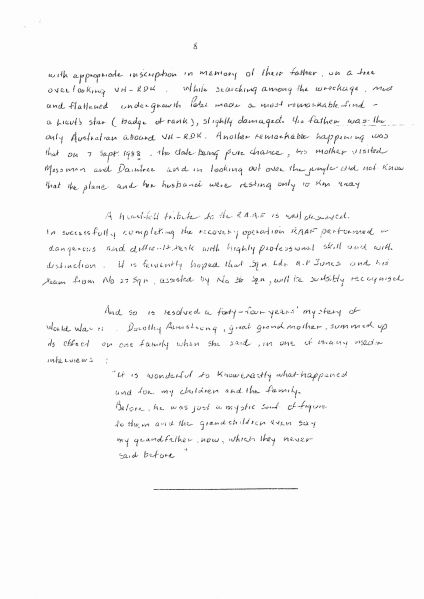 8
with appropriate inscription in memory of their father, on a tree
overlooking VH-RDK. While searching among the wreckage, mud
and flattened undergrowth Peter made a most remarkable find -
a Lieut's star (badge of rank), slightly damaged. His father was the
only Australian aboard VH-RDK. Another remarkable happening was
that on 7 Sept 1988, the date being pure chance, his mother visited
Mossman and Daintree and in looking out over the jungle did not know
that the plane and her husband were resting only 10 km away
A heartfelt tribute to the R.A.A.F is well deserved.
In successfully completing the recovery operation RAAF performed a
dangerous and difficult task with highly professional skill and with
distinction. It is fervently hoped that Sqn Ldr Jones and his
team from No 27 Sqn, assisted by No Sqn, will be suitably recognised
And so is resolved a forty-four years' mystery of
World War II. Dorothy Armstrong, great grandmother, summed up
its effect on one family when she said, in one of many media
interviews :
"It is wonderful to know exactly what happened
and for my children and the family.
Before, he was just a mystic sort of figure
to them and the grandchildren even say
my grandfather now, which they never
said before"